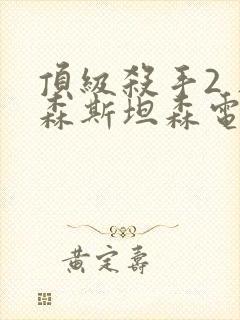 頂級殺手2
森斯坦森電
黃定壽